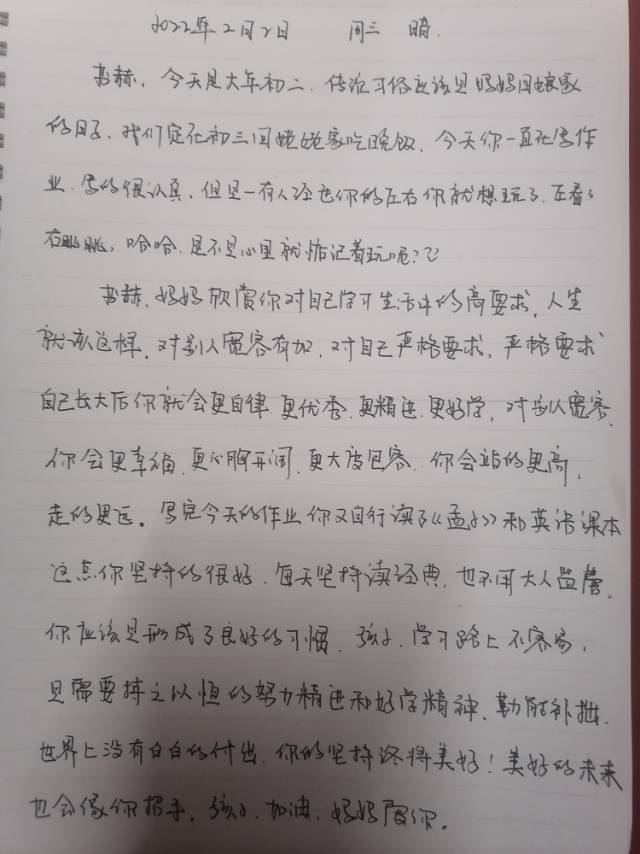 2022年2月2日 周三 晴.
书赫，今天是大年初二，传统习俗应该是妈妈回娘家
的日子，我们定在初三回姥姥家吃晚饭，今天你一直在写作
业，写的很认真，但是一有人经过你的左右你就想玩了，左看看
右眺眺，哈哈，是不是心里就惦记着玩呢？
书赫，妈妈欣赏你对自己学习生活中的高要求，人生
就该这样，对别人宽容有加，对自己严格要求，严格要求
自己长大后你就会更自律 更优秀 更精进 更好学，对别人宽容，
你会更幸福，更心胸开阔，更大度包容，你会站的更高，
走的更远。写完今天的作业你又自行读了《孟子》和英语课本
这点你坚持的很好，每天坚持读经典，也不用大人监督，
你应该是形成了良好的习惯，孩子，学习路上不容易，
是需要持之以恒的努力精进和好学精神，勤能补拙，
世界上没有白白的付出，你的坚持终将美好！美好的未来
也会像你招手，孩子，加油，妈妈爱你。